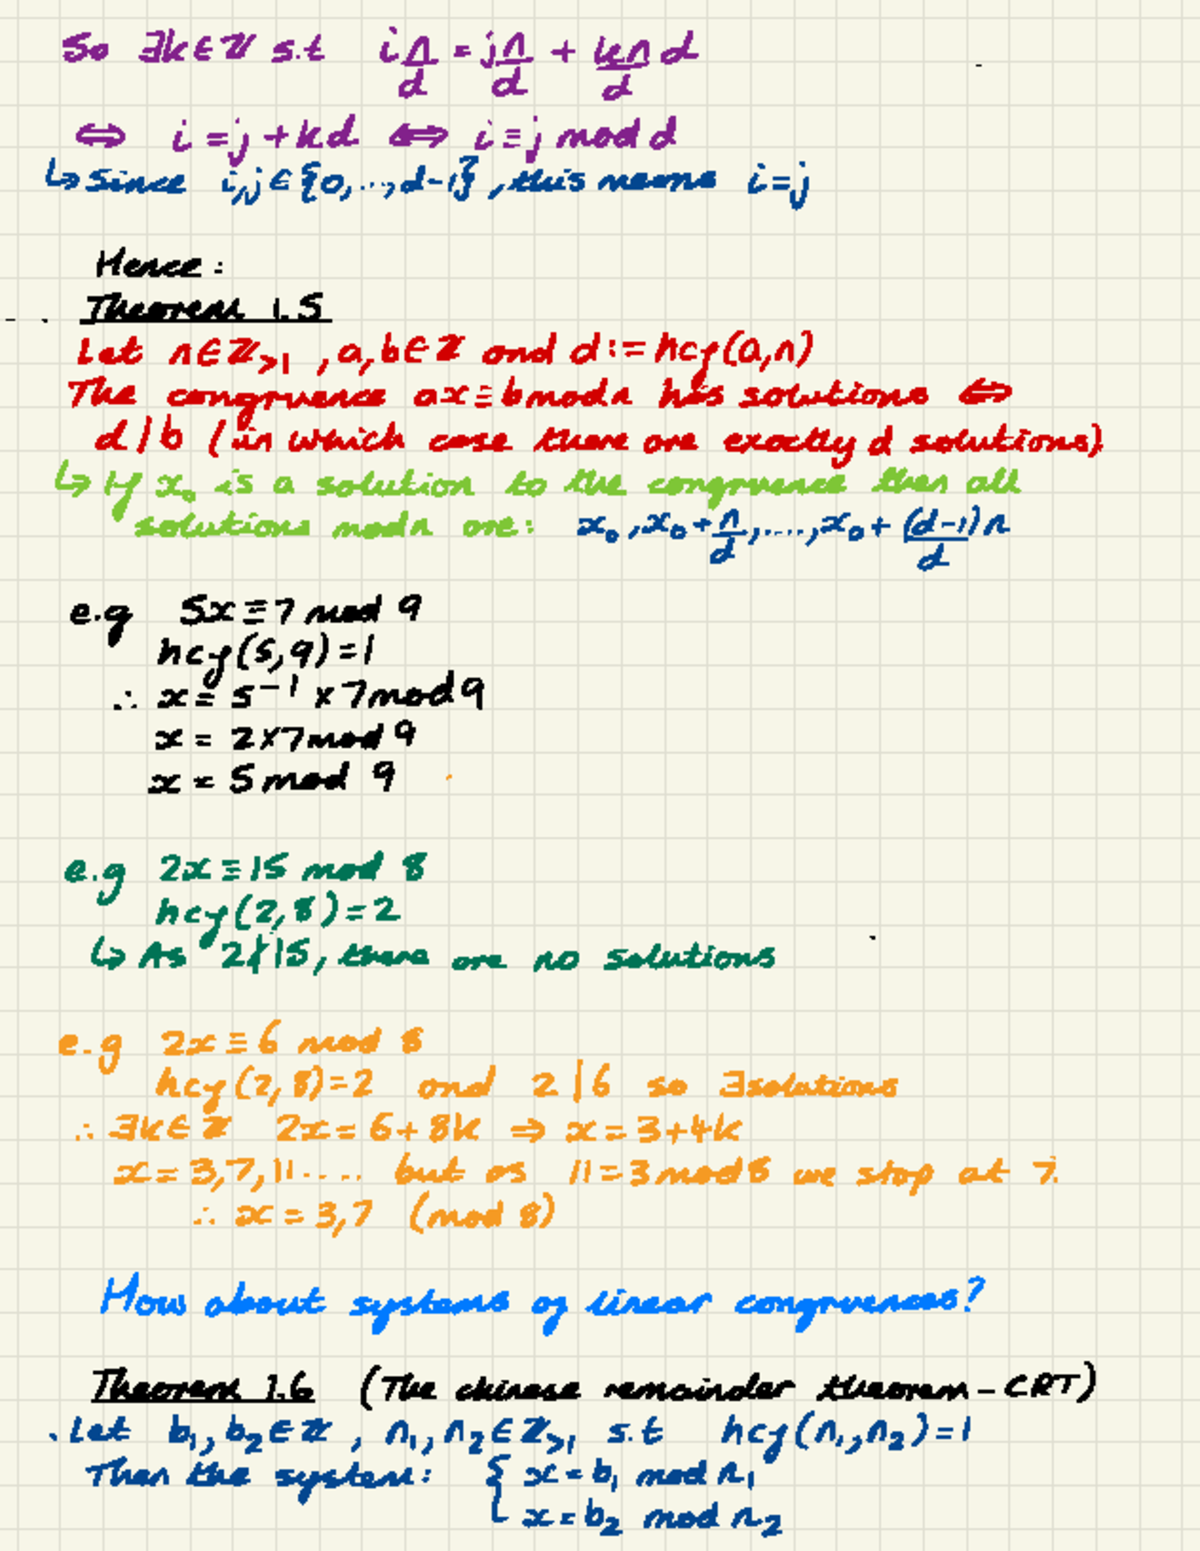 So ∃k∈ℤ s.t i n/d = j n/d + kn/d d
⇔ i = j + kd ⇔ i ≡ j mod d
↳ Since i,j ∈ {0,...,d-1}, this means i=j
Hence:
Theorem 1.5
Let n∈ℤ>1, a,b∈ℤ and d:= hcf(a,n)
The congruence ax ≡ b mod n has solutions ⇔
d|b (in which case there are exactly d solutions)
↳ If x₀ is a solution to the congruence then all
solutions mod n are: x₀, x₀ + n/d, ...., x₀ + (d-1)n/d
e.g 5x ≡ 7 mod 9
hcf(5,9)=1
∴ x = 5⁻¹ × 7 mod 9
x = 2×7 mod 9
x = 5 mod 9
e.g 2x ≡ 15 mod 8
hcf(2,8)=2
↳ As 2∤15, there are no solutions
e.g 2x ≡ 6 mod 8
hcf(2,8)=2 and 2|6 so ∃ solutions
∴ ∃k∈ℤ 2x = 6+8k ⇒ x = 3+4k
x = 3,7,11.... but as 11=3 mod 8 we stop at 7.
∴ x = 3,7 (mod 8)
How about systems of linear congruences?
Theorem 1.6 (The chinese remainder theorem - CRT)
. Let b₁, b₂∈ℤ, n₁, n₂∈ℤ>1 s.t hcf(n₁,n₂)=1
Then the system: { x = b₁ mod n₁
x = b₂ mod n₂